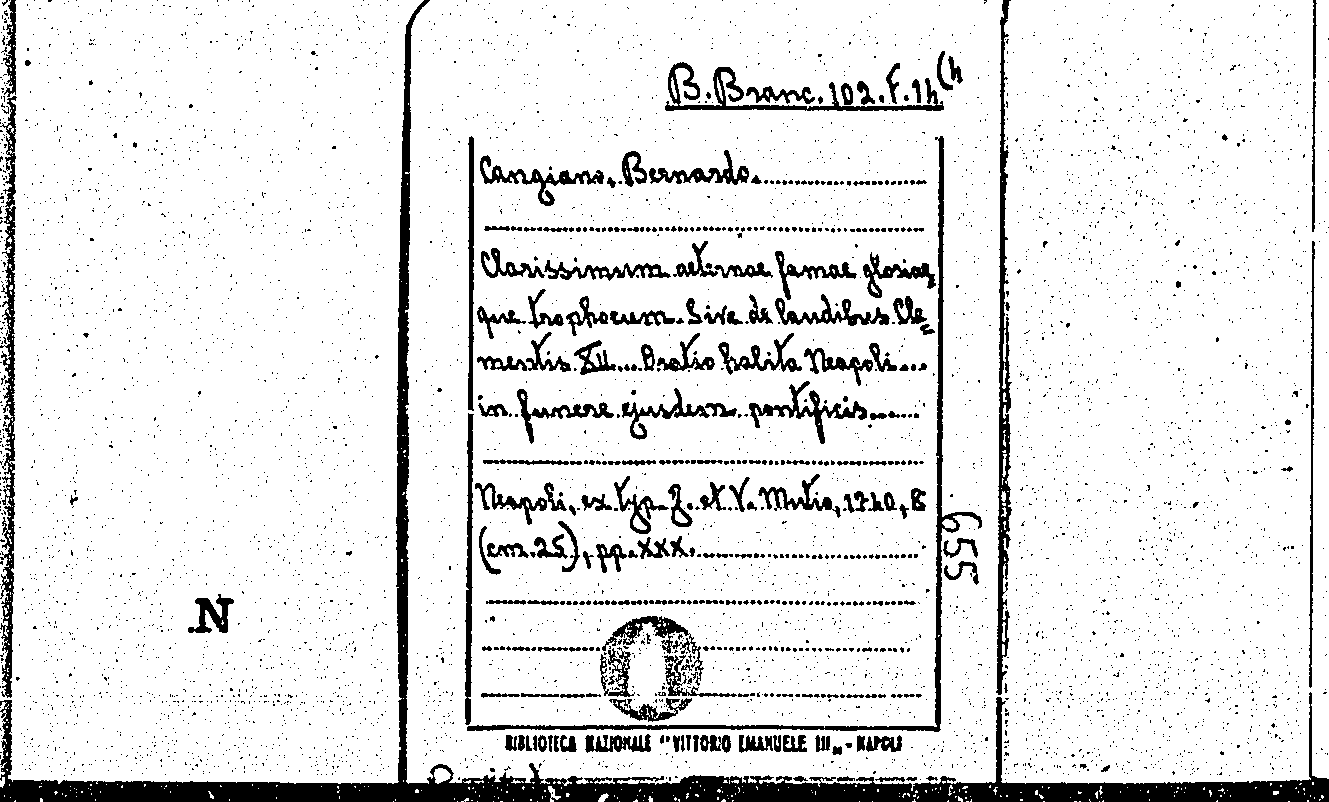 B. Branc. 102. F. 14 (4
Cangiano, Bernardo.
Clarissimum aeternae famae gloriae
que trophoeum. Sive de laudibus Cle=
mentis XII... Oratio habita Neapoli...
in funere ejusdem pontificis...
Neapoli, ex typ. J. et V. Mutio, 1740, 8
(cm. 25), pp. XXX.
655
.N
BIBLIOTECA NAZIONALE "VITTORIO EMANUELE III" - NAPOLI